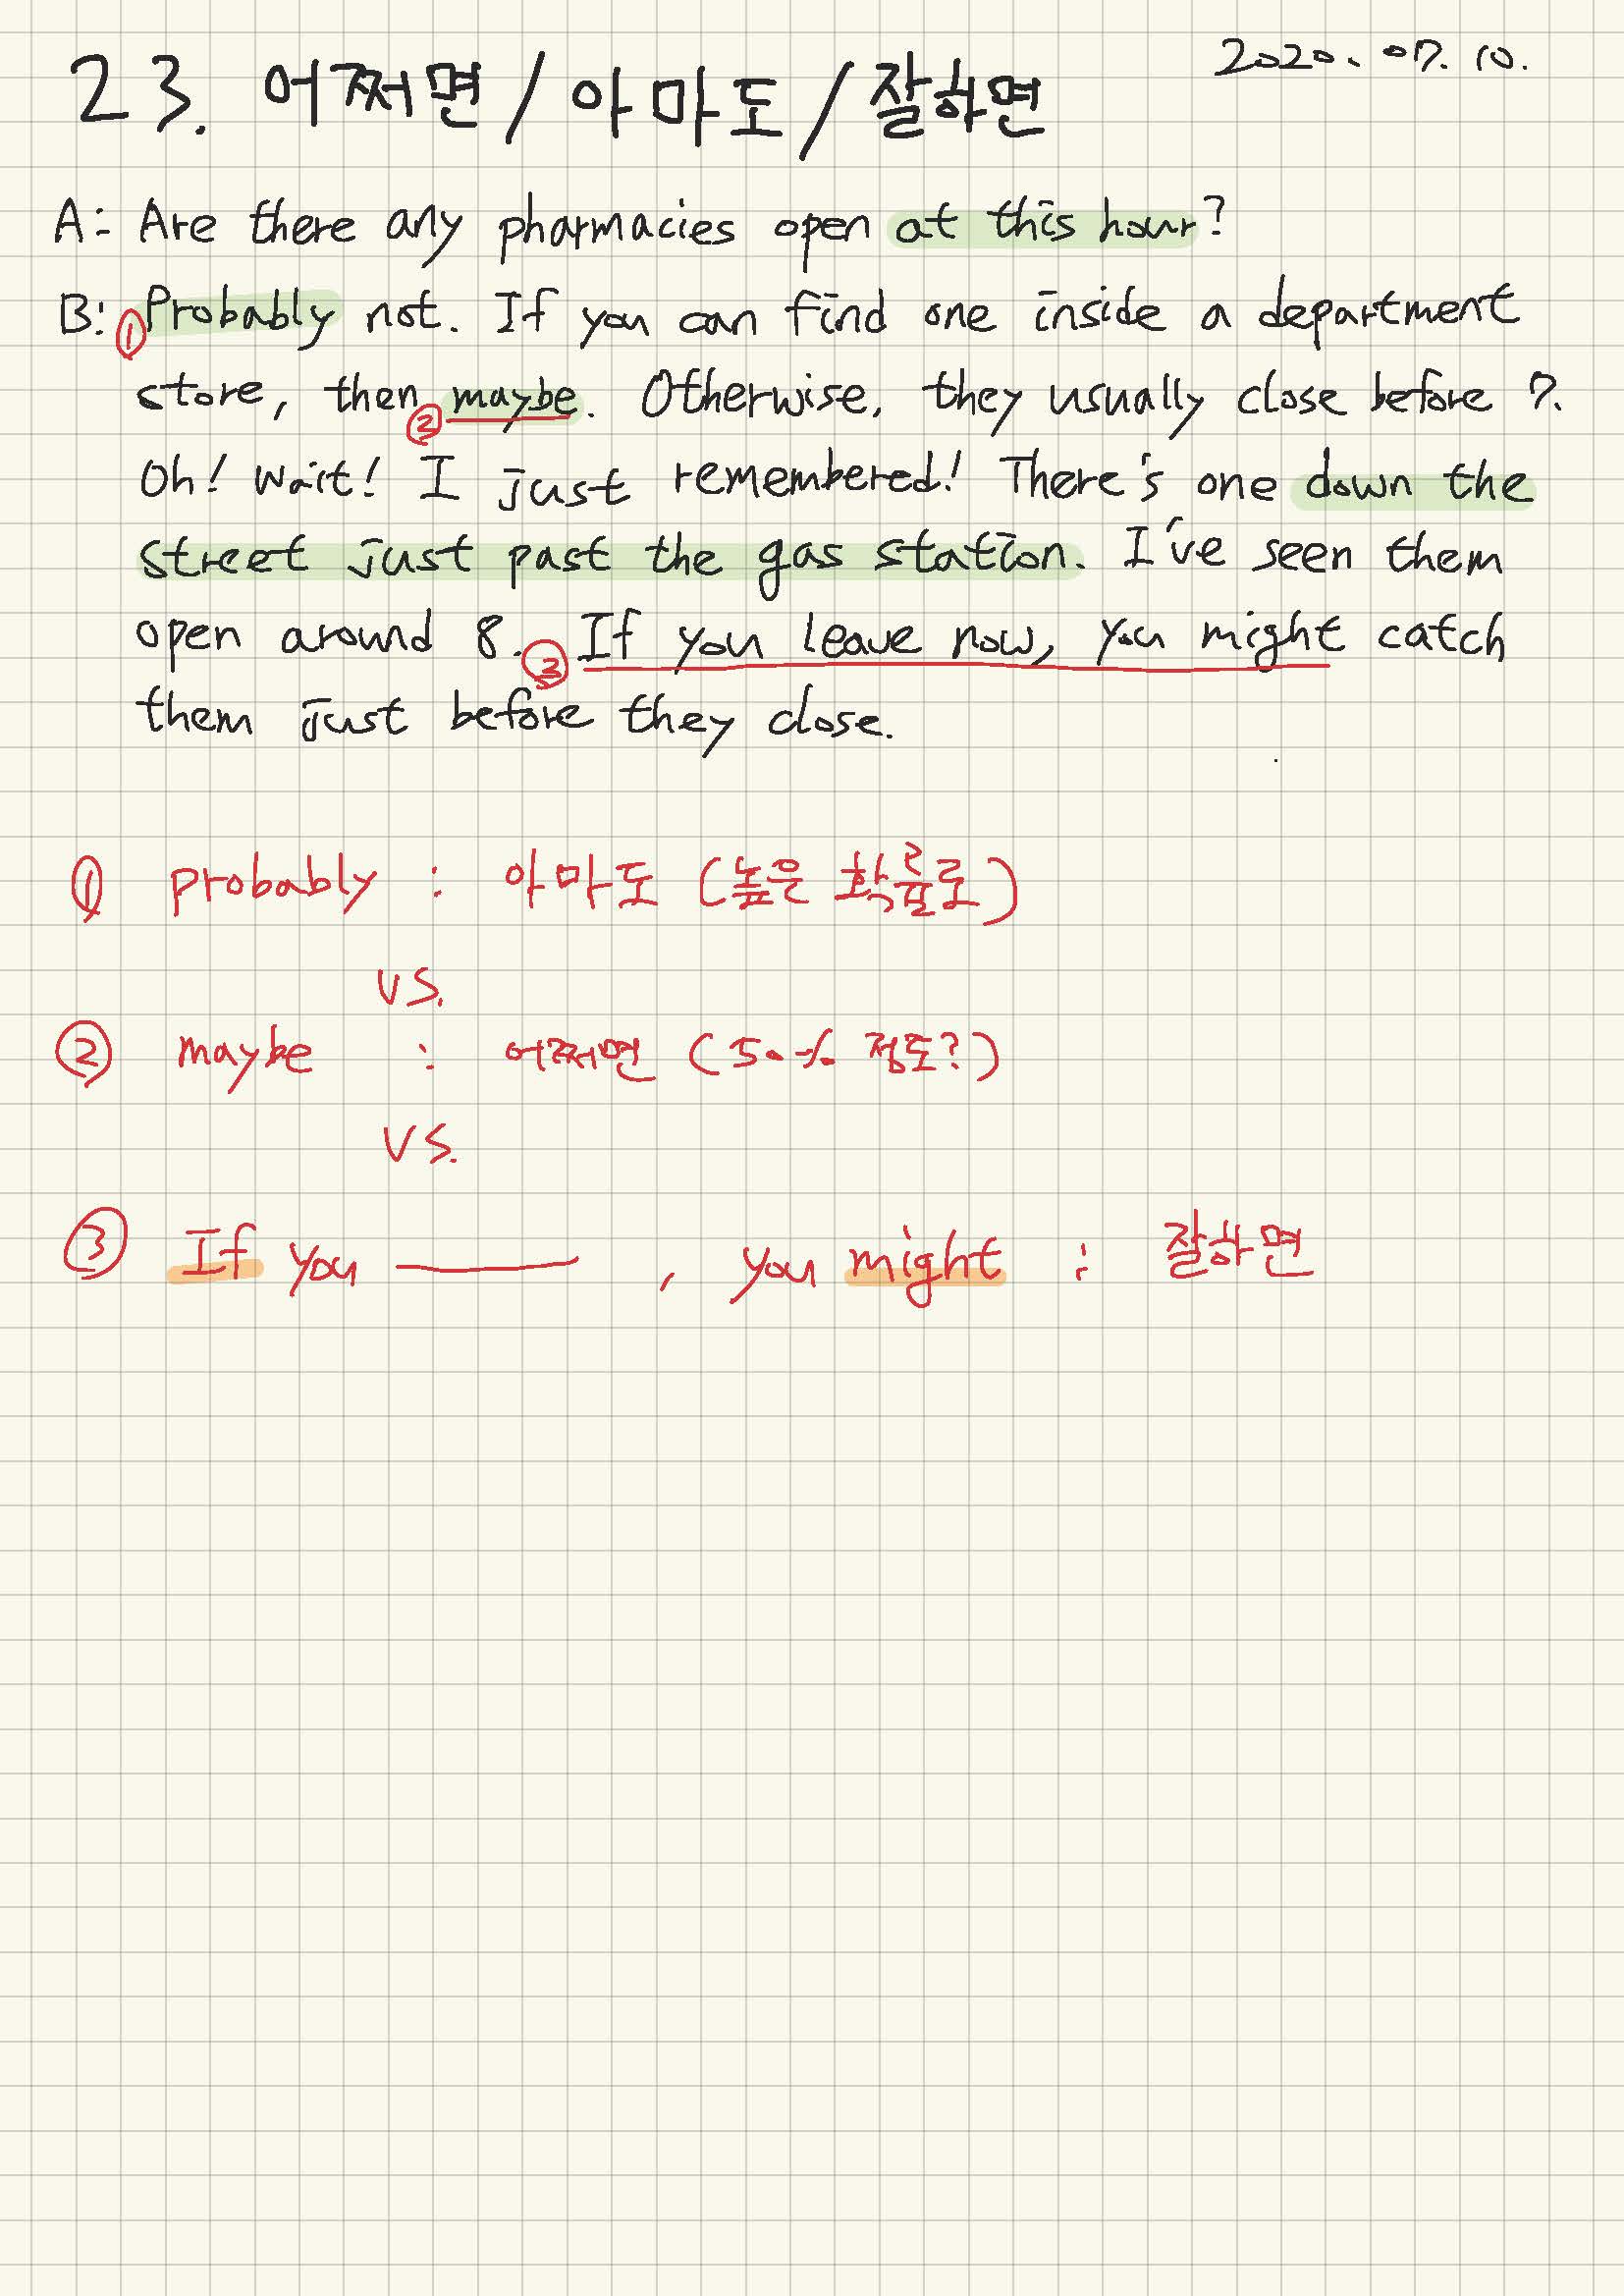 23. 어쩌면/아마도/잘하면
2020. 07. 10.
A: Are there any pharmacies open at this hour?
B: ① Probably not. If you can find one inside a department
store, then ② maybe. Otherwise, they usually close before 7.
Oh! Wait! I just remembered! There's one down the
street just past the gas station. I've seen them
open around 8. ③ If you leave now, you might catch
them just before they close.
① probably : 아마도 (높은 확률로)
VS.
② maybe : 어쩌면 (50% 정도?)
VS.
③ If you ______, you might : 잘하면